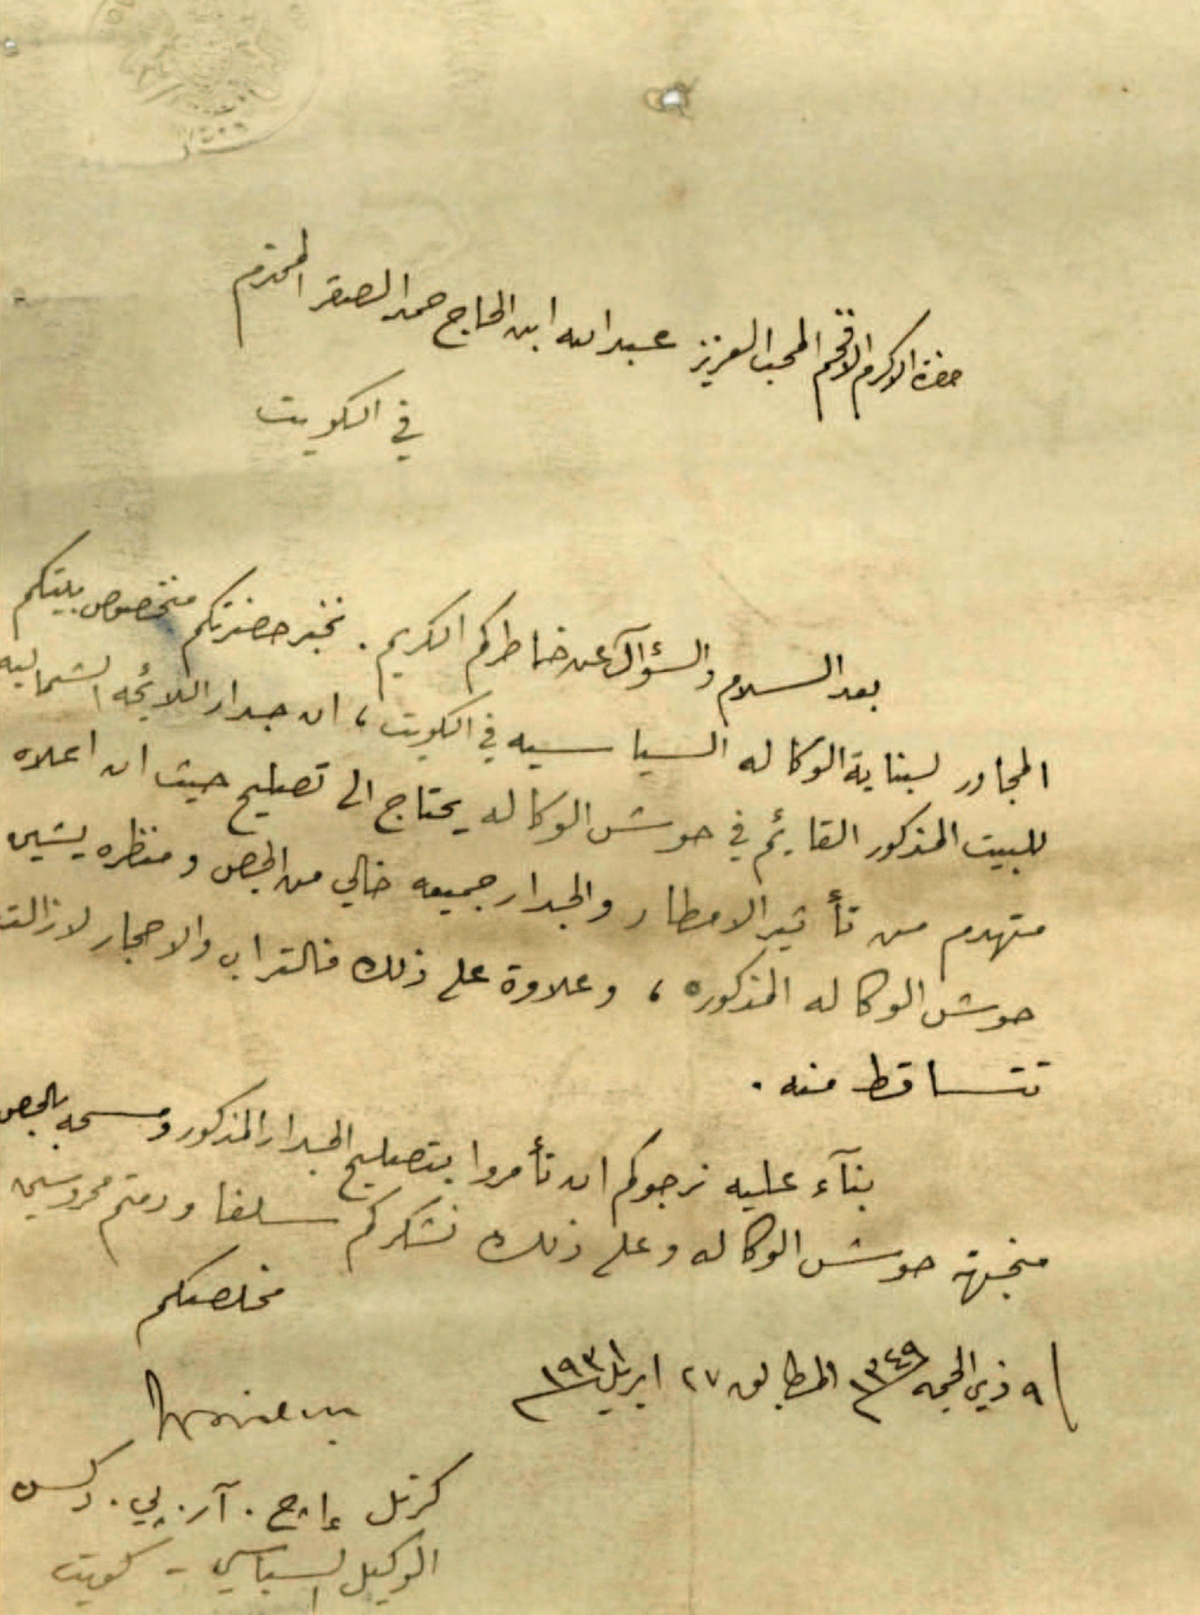 حضرة الاكرم الافخم المحب العزيز عبدالله ابن الحاج حمد الصقر المحترم
في الكويت
بعد السلام والسؤال عن خاطركم الكريم . نخبر حضرتكم منخصوص بيتكم
المجاور لبناية الوكاله السياسيه في الكويت ، ان جدار اللائحه الشماليه
للبيت المذكور القايئم في حوش الوكاله يحتاج الى تصليح حيث ان اعلاه
متهدم من تأثير الامطار والجدار جميعه خالي من الجص ومنظره يشين
حوش الوكاله المذكوره ، وعلاوة على ذلك فالتراب والاحجار لازالت
تتساقط منه .
بنآء عليه نرجوكم ان تأمروا بتصليح الجدار المذكور ومسحه بالجص
منجهة حوش الوكاله وعلى ذلك نشكركم سلفا ودمتم محروسين
مخلصكم
٩ ذي الحجه ١٣٤٩ المطابق ٢٧ ابريل ١٩٣١
كرنل إچ . آر . پي . دكسن
الوكيل السياسي - كويت